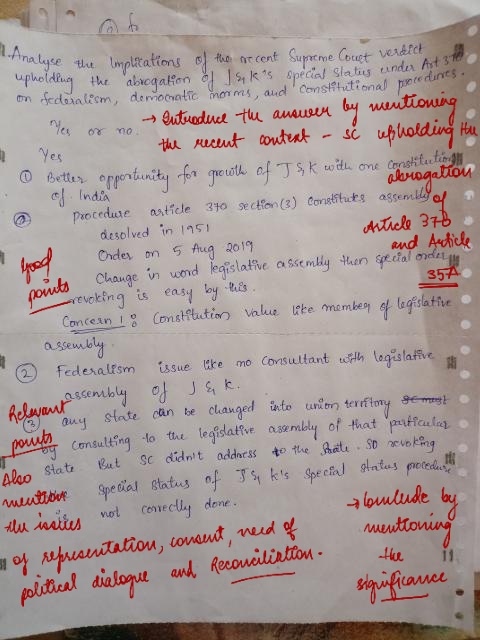 1. Analyse the Implications of the recent Supreme Court verdict
upholding the abrogation of J & K's special status under Art 370
on federalism, democratic norms, and constitutional procedures.
Yes or no.
→ Introduce the answer by mentioning
the recent context - SC upholding the
abrogation
of
Article 370
and Article
35A
Yes
① Better opportunity for growth of J & K with one constitution
of India
② procedure article 370 section (3) constitutes assembly
desolved in 1951
Order on 5 Aug 2019
Good
points
Change in word legislative assembly then special order
revoking is easy by this.
Concern 1: Constitution value like member of legislative
assembly.
② Federalism issue like no consultant with legislative
assembly of J & K.
Relevant
points
③ any state can be changed into union territory
by consulting to the legislative assembly of that particular
state But SC didn't address to the state. SO revoking
special status of J & K's special status procedure
is not correctly done.
Also
mention
the issues
of representation, consent, need of
political dialogue and Reconciliation.
→ Conclude by
mentioning
the
significance